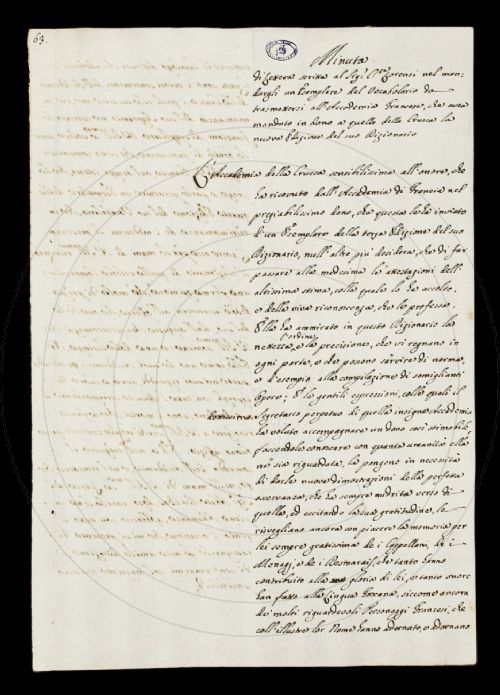 63.
Minuta
di Lettera scritta al Sig.r Lorenzi nel man-
dargli un Esemplare del Vocabolario da
trasmettersi all'Accademia Franzese, che avea
mandato in dono a quella della Crusca la
nuova Edizione del suo Dizionario
L'Accademia della Crusca sensibilissima all'onore, che
ha ricevuto dall'Accademia di Francia nel
pregiabilissimo dono, che questa le ha inviato
d'un Esemplare della terza Edizione del suo
Dizionario, null'altro più desidera, che di far
passare alla medesima le attestazioni dell'
altissima stima, colla quale lo ha accolto,
e della viva riconoscenza, che le professa.
Ella ha ammirato in questo Dizionario la
nettezza, l'ordine, e la precisione, che vi regnano in
ogni parte, e che possono servire di norma,
e d'esempio alla compilazione di somiglianti
Opere; E le gentili espressioni, colle quali il
Segretario perpetuo di quella insigne Accademia
ha voluto accompagnare un dono così stimabile,
facendole conoscere con quanta umanità ella
ne sia riguardata, la pongono in necessità
di darle nuove dimostrazioni della perfetta
osservanza, che ha sempre nudrita verso di
quella, ed eccitando la sua gratitudine, le
risvegliano ancora con piacere la memoria per
lei sempre gratissima de i Cappellani, de i
Menagj, e de i Desmarais, che tanto hanno
contribuito alla gloria di lei, e tanto onore
han fatto alla Lingua Toscana, siccome ancora
de' molti riguardevoli Personaggi Franzesi, che
coll'illustre lor Nome hanno adornato, e adornano